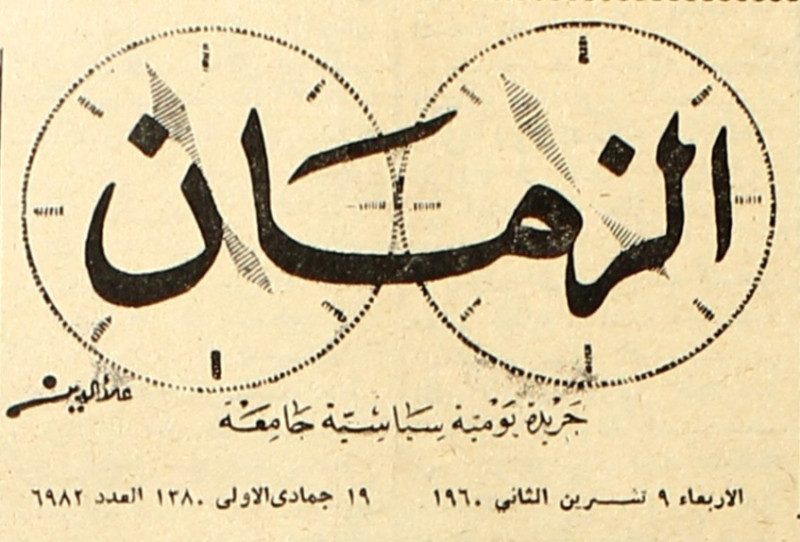 الزمان
علاء الدين
جَريدة يَوميّة سِيَاسِيّة جَامِعَة
الاربعاء ٩ تشـرين الثاني ١٩٦٠
١٩ جمادى الاولى ١٣٨٠ العدد ٦٩٨٢